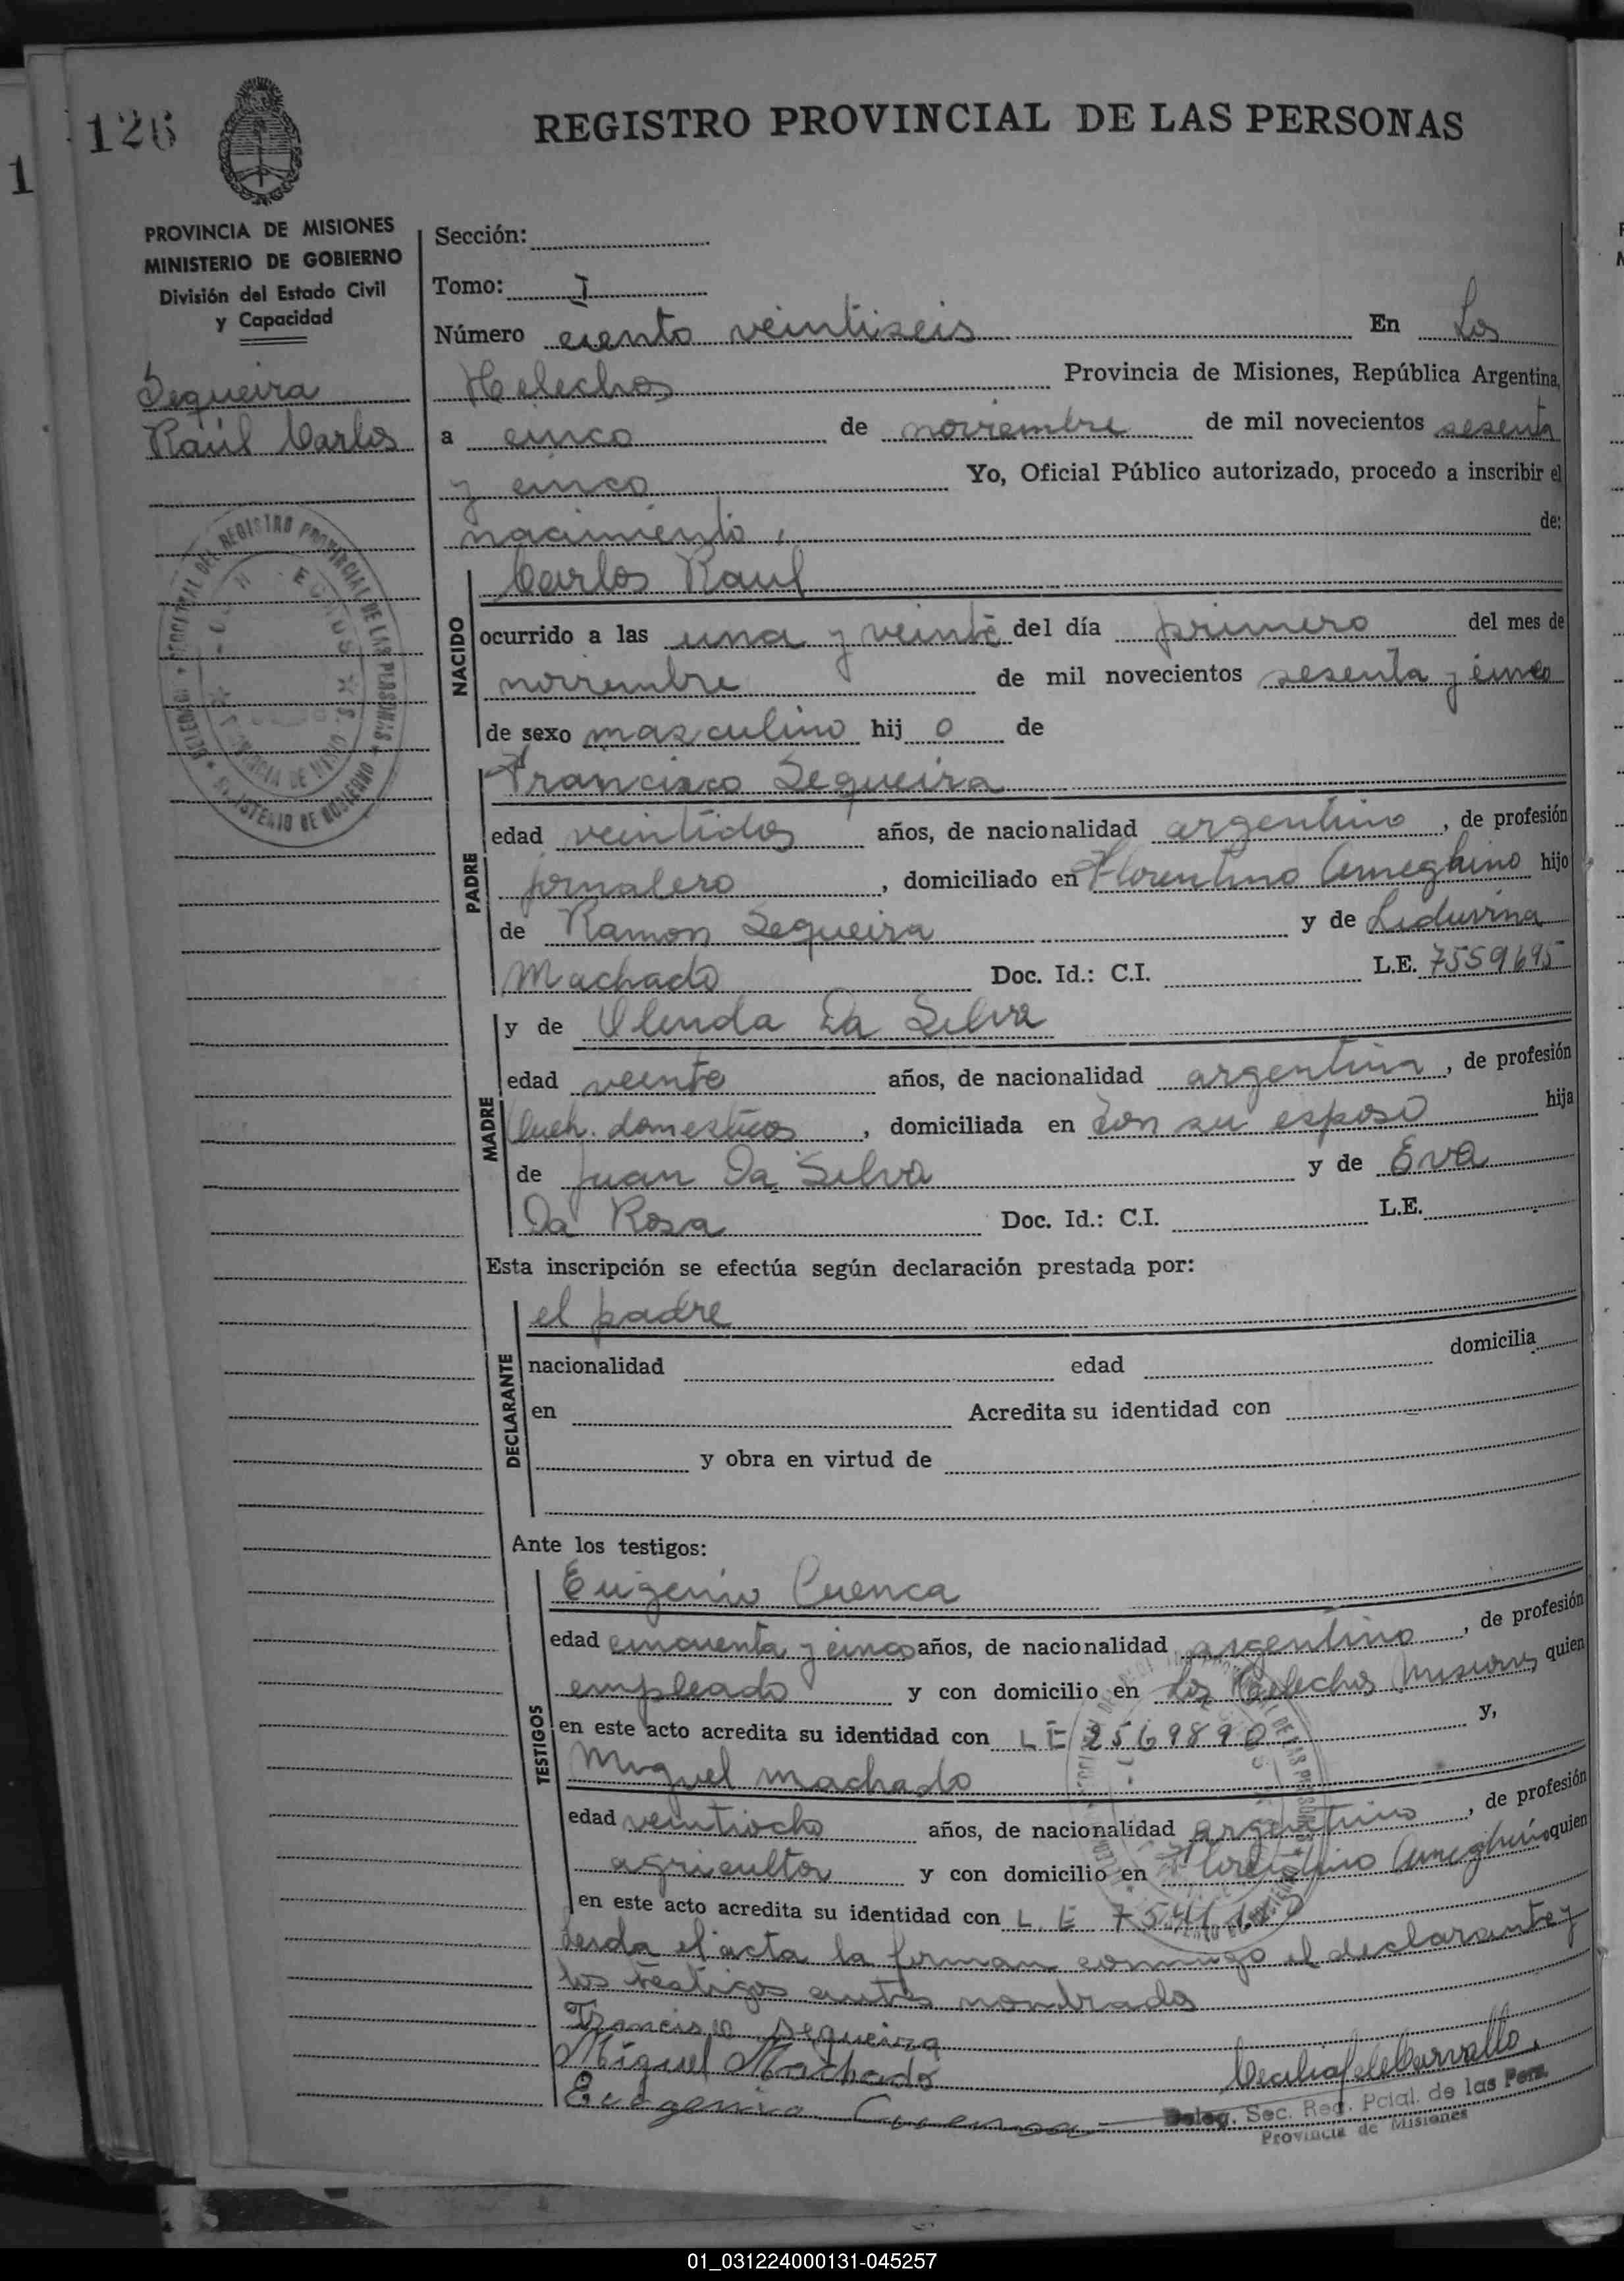 126
REGISTRO PROVINCIAL DE LAS PERSONAS
1
PROVINCIA DE MISIONES
MINISTERIO DE GOBIERNO
División del Estado Civil
y Capacidad
Sequeira
Raúl Carlos
Sección:
Tomo: I
Número ciento veintiseis En Los
Helechos Provincia de Misiones, República Argentina,
a cinco de noviembre de mil novecientos sesenta
y cinco Yo, Oficial Público autorizado, procedo a inscribir el
nacimiento, de:
NACIDO
Carlos Raul
ocurrido a las una y veinte del día primero del mes de
noviembre de mil novecientos sesenta y cinco
de sexo masculino hij o de
PADRE
Francisco Sequeira
edad veintidos años, de nacionalidad argentino, de profesión
jornalero, domiciliado en Florentino Ameghino hijo
de Ramon Sequeira y de Liduvina
Machado Doc. Id.: C.I. L.E. 7559695
MADRE
y de Olenda Da Silva
edad veinte años, de nacionalidad argentina, de profesión
Queh. domesticos, domiciliada en con su esposo hija
de Juan Da Silva y de Eva
Da Rosa Doc. Id.: C.I. L.E.
Esta inscripción se efectúa según declaración prestada por:
DECLARANTE
el padre
nacionalidad edad domicilia
en Acredita su identidad con
y obra en virtud de
Ante los testigos:
TESTIGOS
Eugenio Cuenca
edad cincuenta y cinco años, de nacionalidad argentino, de profesión
empleado y con domicilio en Los Helechos Misiones quien
en este acto acredita su identidad con LE 2569890 y,
Miguel Machado
edad veintiocho años, de nacionalidad argentino, de profesión
agricultor y con domicilio en Florentino Ameghino quien
en este acto acredita su identidad con L. E
Leida el acta la firman conmigo el declarante y
los testigos antes nombrados
Francisco Sequeira
Miguel Machado
Eugenio Cuenca
Deleg. Sec. Reg. Pcial. de las Pers.
Provincia de Misiones
01_031224000131-045257